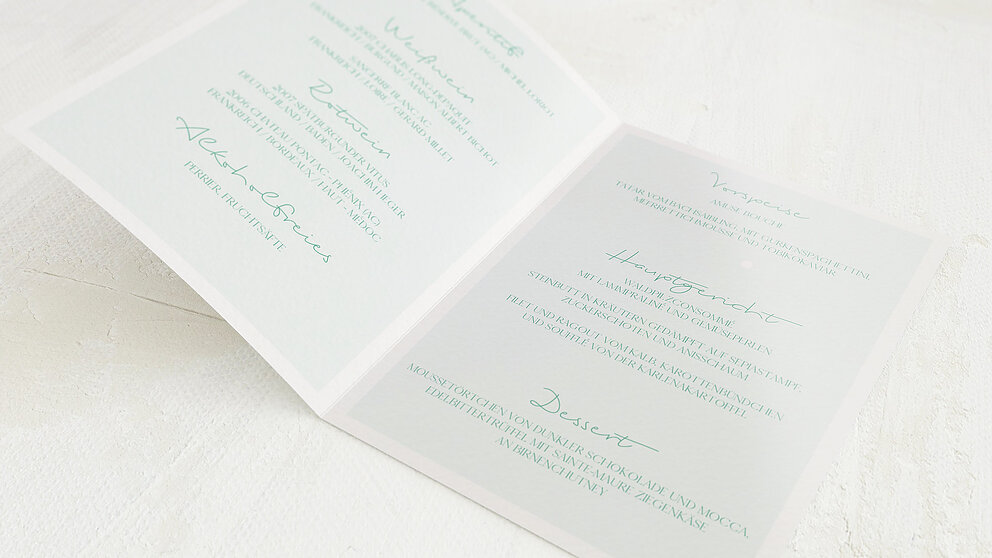 Aperitif
RÉSERVE BRUT (AC) / MICHEL LORIOT
Weißwein
2007 CHABLIS LONG-DEPAQUIT
FRANKREICH / BURGUND / MAISON ALBERT BICHOT
SANCERRE BLANC AC
FRANKREICH / LOIRE / GERARD MILLET
Rotwein
2007 SPÄTBURGUNDER VITUS
DEUTSCHLAND / BADEN / JOACHIM HEGER
2006 CHATEAU PONTAC - PHÉNIX (AC),
FRANKREICH / BORDEAUX / HAUT - MÉDOC
Alkoholfreies
PERRIER, FRUCHTSÄFTE
Vorspeise
AMUSE BOUCHE
TATAR VOM BACHSAIBLING, MIT GURKENSPAGHETTINI,
MEERRETTICHMOUSSE UND TOBIKOKAVIAR
Hauptgericht
WALDPILZCONSOMMÉ
MIT LAMMPRALINE UND GEMÜSEPERLEN
STEINBUTT IN KRÄUTERN GEDÄMPFT AUF SEPIASTAMPF,
ZUCKERSCHOTEN UND ANISSCHAUM
FILET UND RAGOUT VOM KALB, KAROTTENBÜNDCHEN
UND SOUFFLÉ VON DER KARLENAKARTOFFEL
Dessert
MOUSSETÖRTCHEN VON DUNKLER SCHOKOLADE UND MOCCA,
EDELBITTERTRÜFFEL MIT SAINTE-MAURE ZIEGENKÄSE
AN BIRNENCHUTNEY